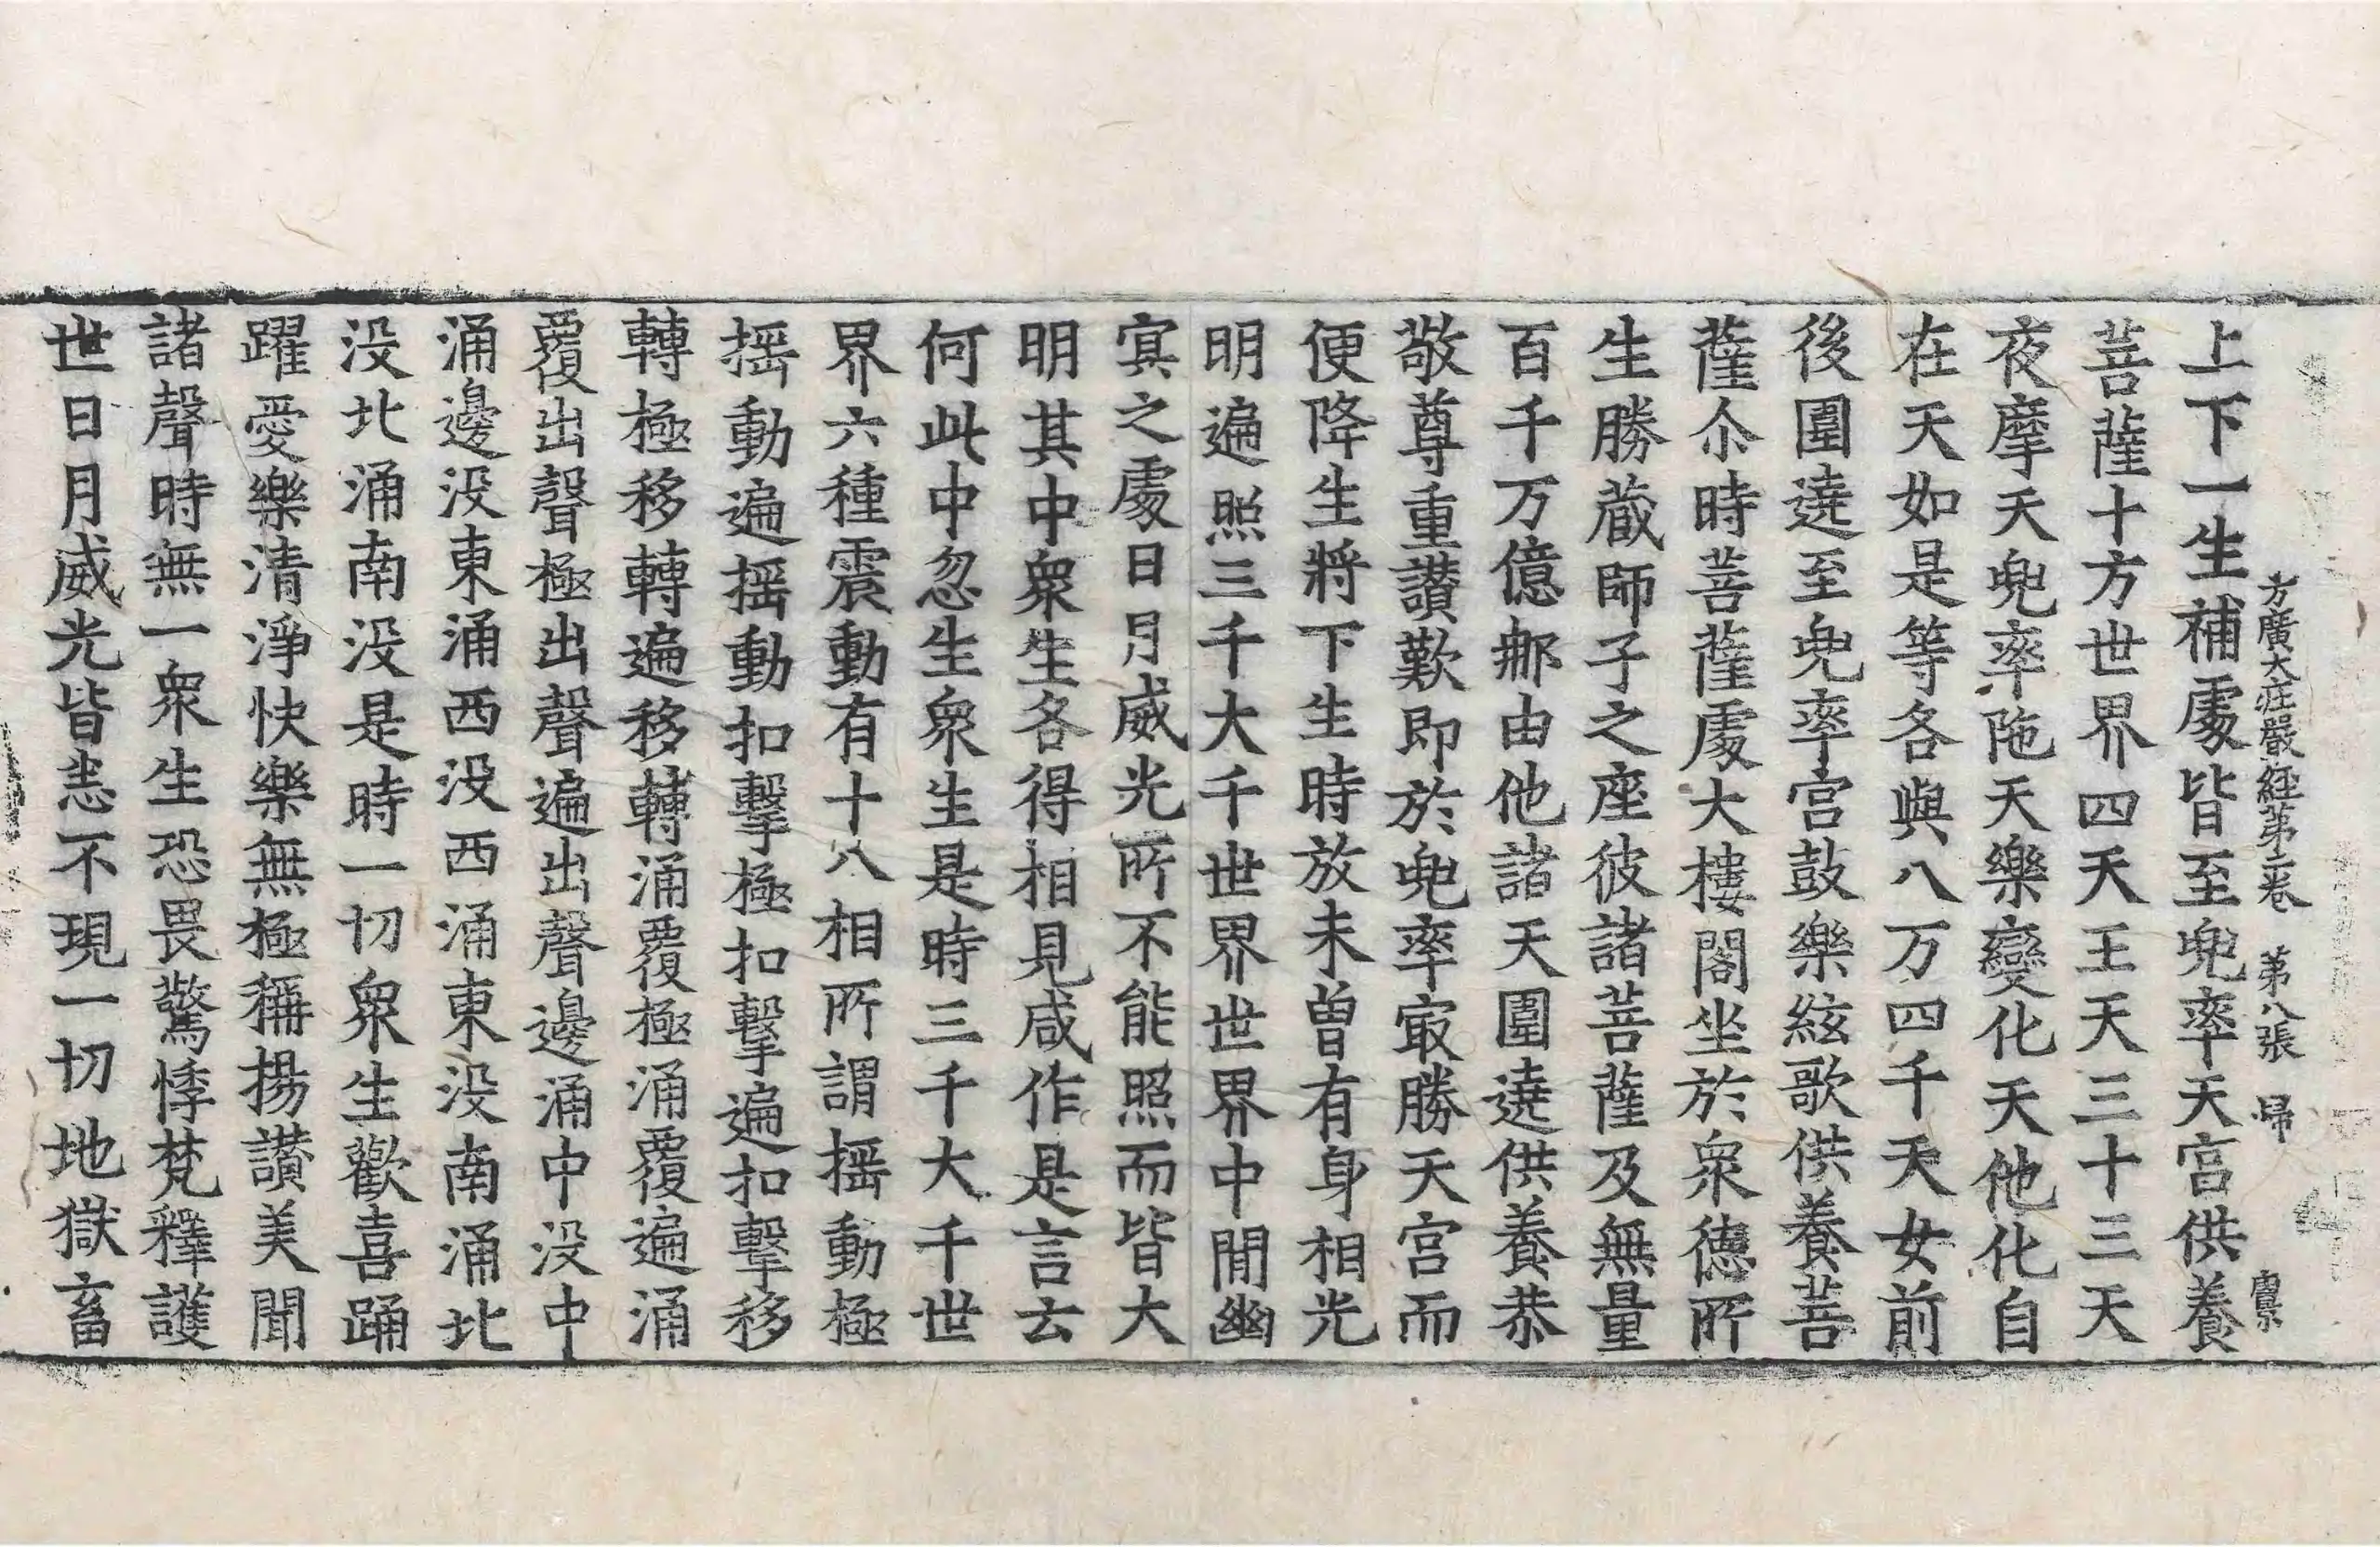 方廣大莊嚴經第二卷 第八張 帰
上下一生補處皆至兜率天宮供養
菩薩十方世界四天王天三十三天
夜摩天兜率陁天樂變化天他化自
在天如是等各與八万四千天女前
後圍遶至兜率宮鼓樂絃歌供養菩
薩尒時菩薩處大樓閣坐於衆德所
生勝蔵師子之座彼諸菩薩及無量
百千万億那由他諸天圍遶供養恭
敬尊重讃歎即於兜率㝡勝天宮而
便降生將下生時放未曽有身相光
明遍照三千大千世界世界中間幽
㝠之處日月威光所不能照而皆大
明其中衆生各得相見咸作是言云
何此中忽生衆生是時三千大千世
界六種震動有十八相所謂揺動極
揺動遍揺動扣擊極扣擊遍扣擊移
轉極移轉遍移轉涌覆極涌覆遍涌
覆出聲極出聲遍出聲邊涌中没中
涌邊没東涌西没西涌東没南涌北
没北涌南没是時一切衆生歡喜踊
躍愛樂清淨快樂無極稱揚讃美聞
諸聲時無一衆生恐畏驚悸梵釋護
世日月威光皆悉不現一切地獄畜